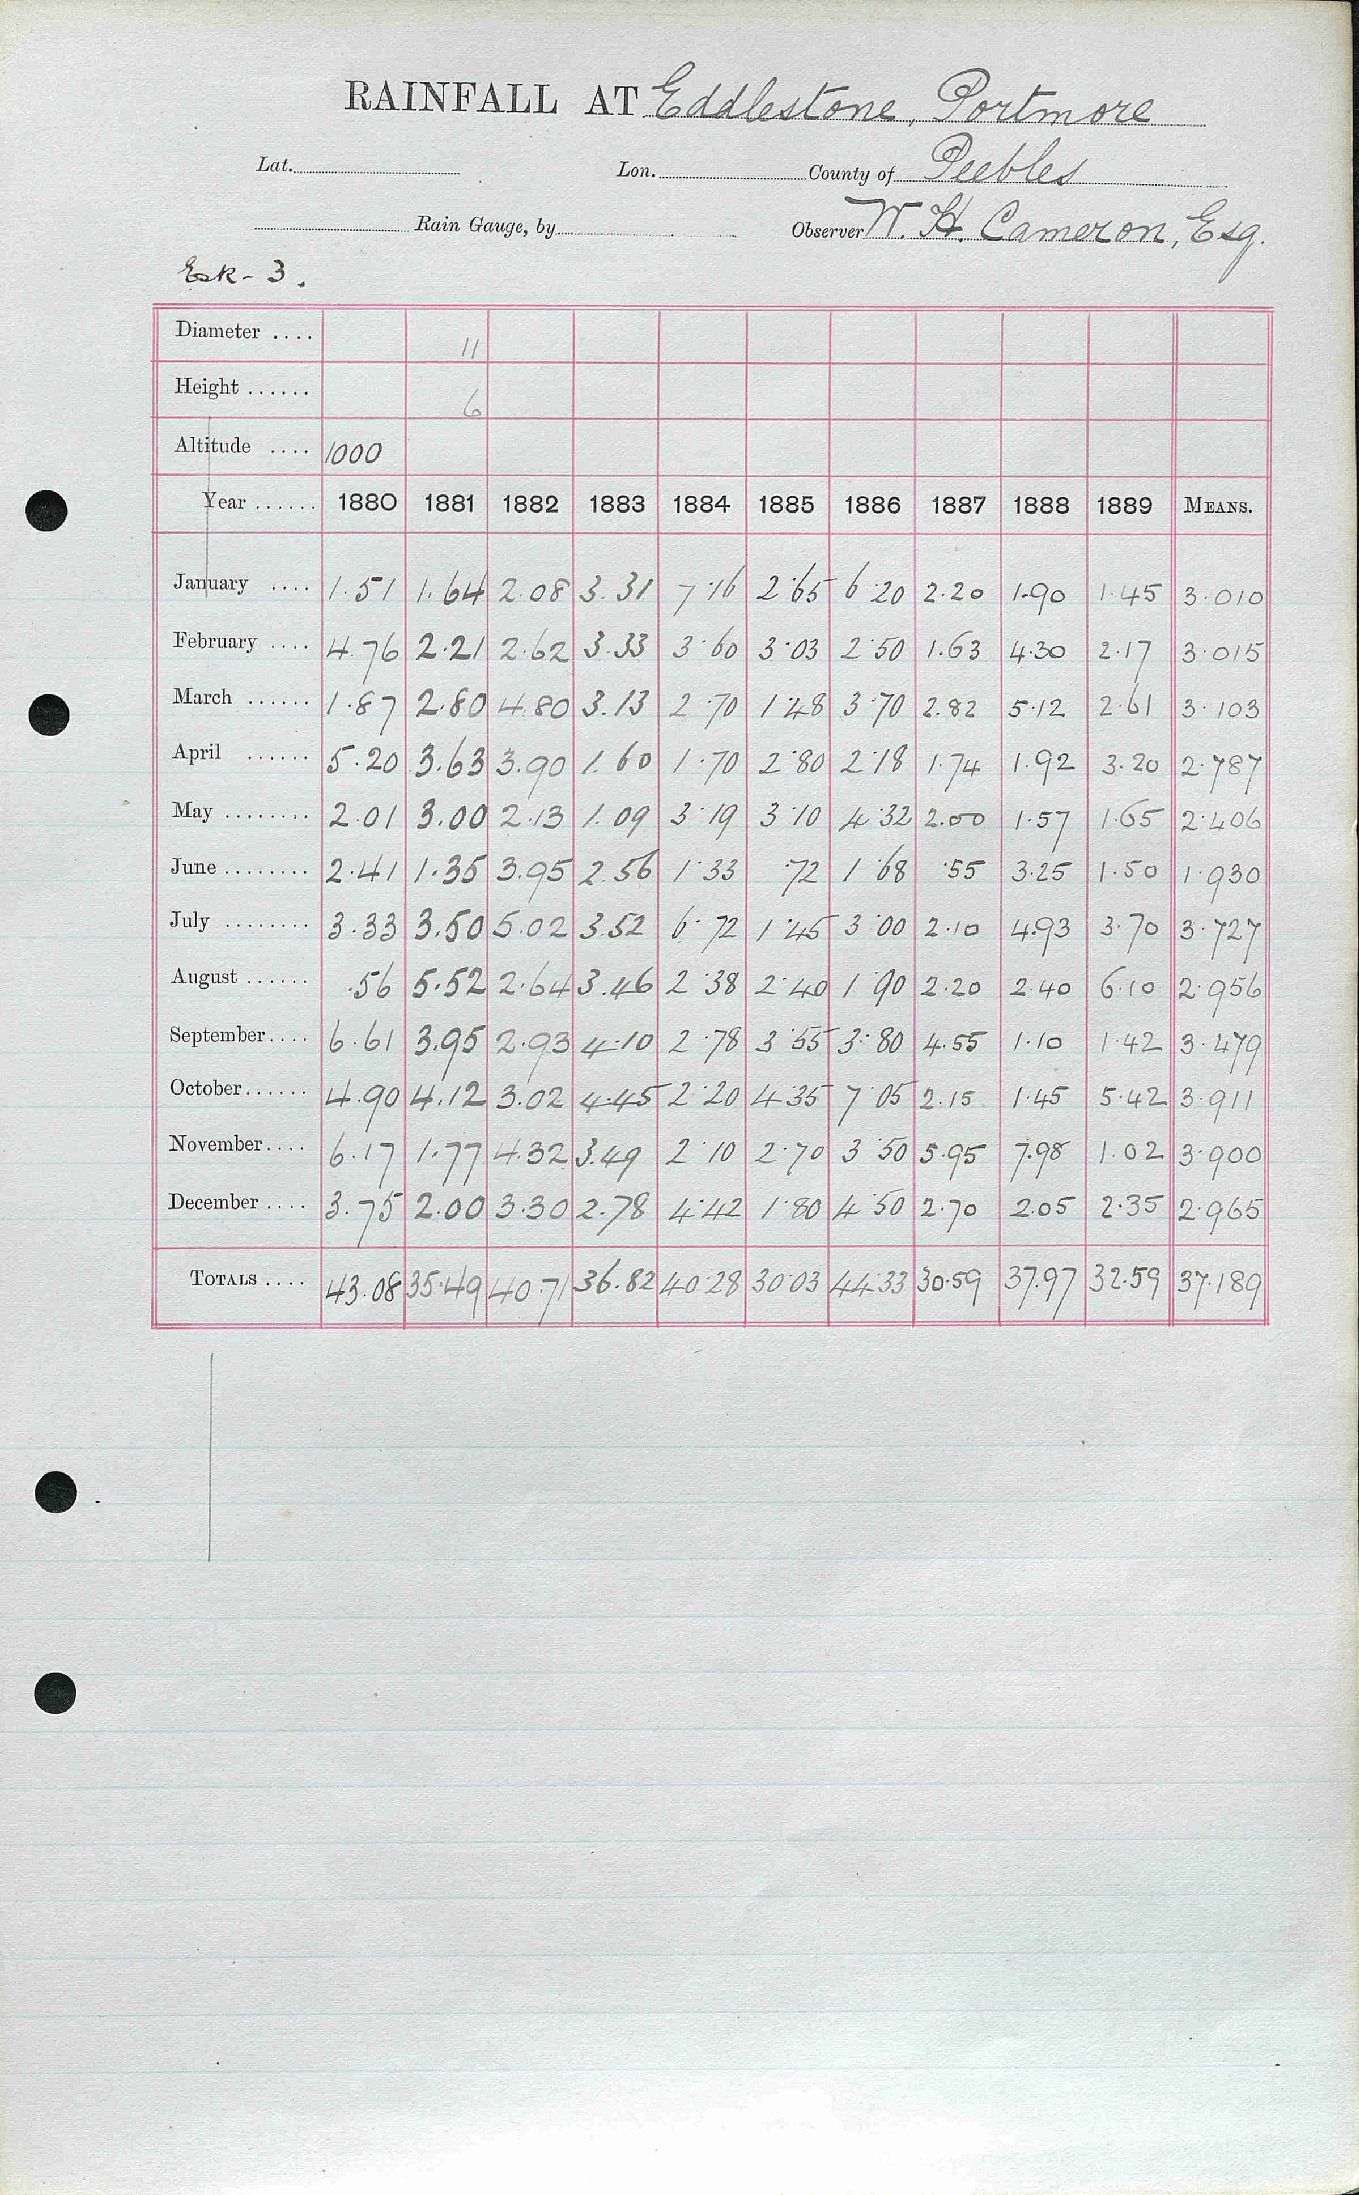 RAINFALL AT Eddlestone, Portmore
Lat. Lon. County of Peebles
Rain Gauge, by Observer W. H. Cameron, Esq.
Esk - 3.
Diameter .... 11
Height ...... 6
Altitude .... 1000
Year ...... 1880 1881 1882 1883 1884 1885 1886 1887 1888 1889 MEANS.
January .... 1.51 1.64 2.08 3.31 7.16 2.65 6.20 2.20 1.90 1.45 3.010
February .... 4.76 2.21 2.62 3.33 3.60 3.03 2.50 1.63 4.30 2.17 3.015
March ...... 1.87 2.80 4.80 3.13 2.70 1.48 3.70 2.82 5.12 2.61 3.103
April ...... 5.20 3.63 3.90 1.60 1.70 2.80 2.18 1.74 1.92 3.20 2.787
May ........ 2.01 3.00 2.13 1.09 3.19 3.10 4.32 2.00 1.57 1.65 2.406
June ........ 2.41 1.35 3.95 2.56 1.33 .72 1.68 .55 3.25 1.50 1.930
July ........ 3.33 3.50 5.02 3.52 6.72 1.45 3.00 2.10 4.93 3.70 3.727
August ...... .56 5.52 2.64 3.46 2.38 2.40 1.90 2.20 2.40 6.10 2.956
September.... 6.61 3.95 2.93 4.10 2.78 3.55 3.80 4.55 1.10 1.42 3.479
October...... 4.90 4.12 3.02 4.45 2.20 4.35 7.05 2.15 1.45 5.42 3.911
November.... 6.17 1.77 4.32 3.49 2.10 2.70 3.50 5.95 7.98 1.02 3.900
December .... 3.75 2.00 3.30 2.78 4.42 1.80 4.50 2.70 2.05 2.35 2.965
TOTALS .... 43.08 35.49 40.71 36.82 40.28 30.03 44.33 30.59 37.97 32.59 37.189